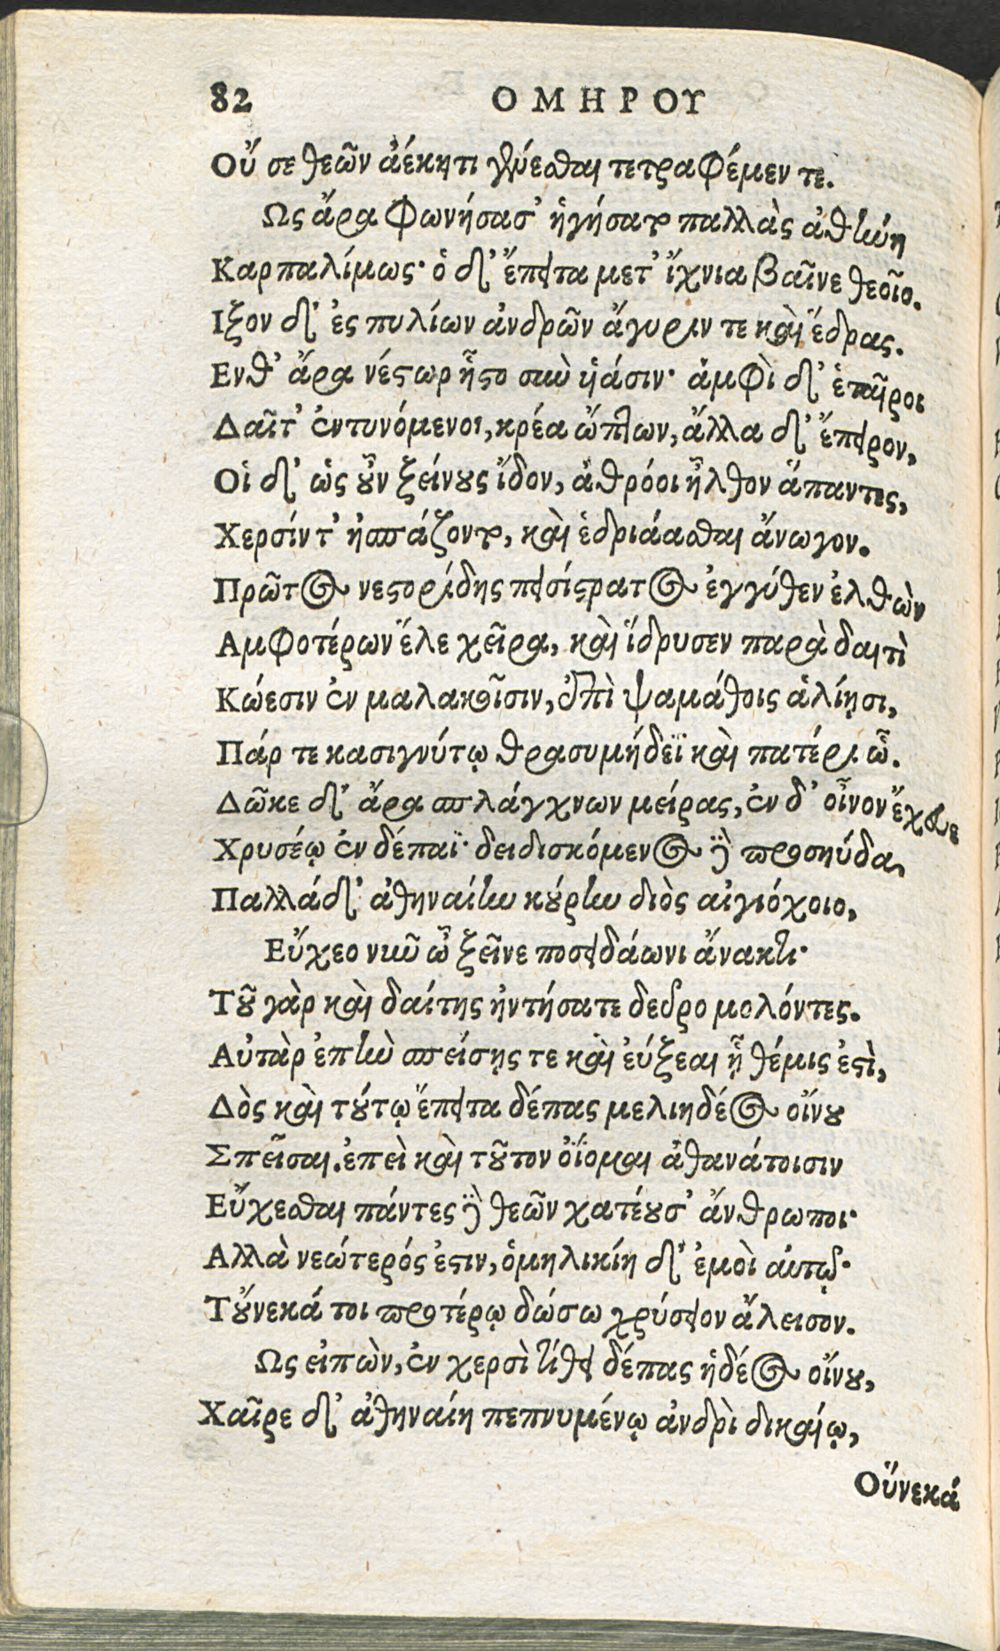 82 ΟΜΗΡΟΥ
Οὔ σε θεῶν ἀέκητι γενέσθαι τετραφέμεν τε.
Ως ἄρα φωνήσασ' ἡγήσατο παλλὰς ἀθήνη
Καρπαλίμως· ὁ δ' ἔπειτα μετ' ἴχνια βαῖνε θεοῖο.
Ιξον δ' ἐς πυλίων ἀνδρῶν ἄγυριν τε καὶ ἕδρας.
Ενθ' ἄρα νέστωρ ἧστο σὺν υἱάσιν· ἀμφὶ δ' ἑταῖροι
Δαῖτ' ἐντυνόμενοι, κρέα ὤπτων, ἄλλα δ' ἔπειρον,
Οἱ δ' ὡς οὖν ξείνους ἴδον, ἀθρόοι ἦλθον ἅπαντες,
Χερσίν τ' ἠσπάζοντο, καὶ ἑδριάασθαι ἄνωγον.
Πρῶτος νεστορίδης πεισίστρατος ἐγγύθεν ἐλθὼν
Αμφοτέρων ἕλε χεῖρα, καὶ ἵδρυσεν παρὰ δαιτὶ
Κώεσιν ἐν μαλακοῖσιν, ἐπὶ ψαμάθοις ἁλίῃσι,
Πάρ τε κασιγνύτῳ θρασυμήδεϊ καὶ πατέρι ᾧ.
Δῶκε δ' ἄρα σπλάγχνων μείρας, ἐν δ' οἶνον ἔχευε
Χρυσέῳ ἐν δέπαϊ· δειδισκόμενος δὲ προσηύδα,
Παλλάδ' ἀθηναίην κούρην διὸς αἰγιόχοιο,
Εὔχεο νῦν ὦ ξεῖνε ποσειδάωνι ἄνακτι·
Τοῦ γὰρ καὶ δαίτης ἠντήσατε δεῦρο μολόντες.
Αὐτὰρ ἐπὴν σπείσῃς τε καὶ εὔξεαι ᾗ θέμις ἐστὶ,
Δὸς καὶ τούτῳ ἔπειτα δέπας μελιηδέος οἴνου
Σπεῖσαι. ἐπεὶ καὶ τοῦτον ὀΐομαι ἀθανάτοισιν
Εὔχεσθαι πάντες δὲ θεῶν χατέουσ' ἄνθρωποι·
Αλλὰ νεώτερός ἐστιν, ὁμηλικίη δ' ἐμοὶ αὐτῷ·
Τοὔνεκά τοι προτέρῳ δώσω χρύσειον ἄλεισον.
Ως εἰπὼν, ἐν χερσὶ τίθει δέπας ἡδέος οἴνου,
Χαῖρε δ' ἀθηναίη πεπνυμένῳ ἀνδρὶ δικαίῳ,
Οὕνεκά